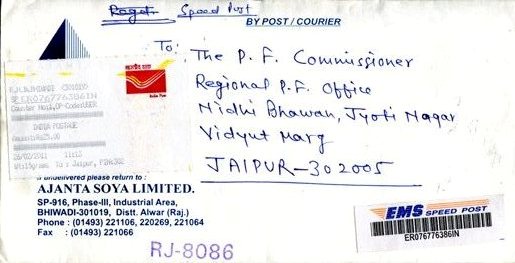 Speed Post
BY POST / COURIER
To:
The P.F. Commissioner
Regional P.F. Office
Nidhi Bhawan, Jyoti Nagar
Vidyut Marg
JAIPUR-302005
India Post
INDIA POSTAGE
If undelivered please return to :
AJANTA SOYA LIMITED.
SP-916, Phase-III, Industrial Area,
BHIWADI-301019, Distt. Alwar (Raj.)
Phone : (01493) 221106, 220269, 221064
Fax : (01493) 221066
RJ-8086
EMS SPEED POST
ER076776386IN